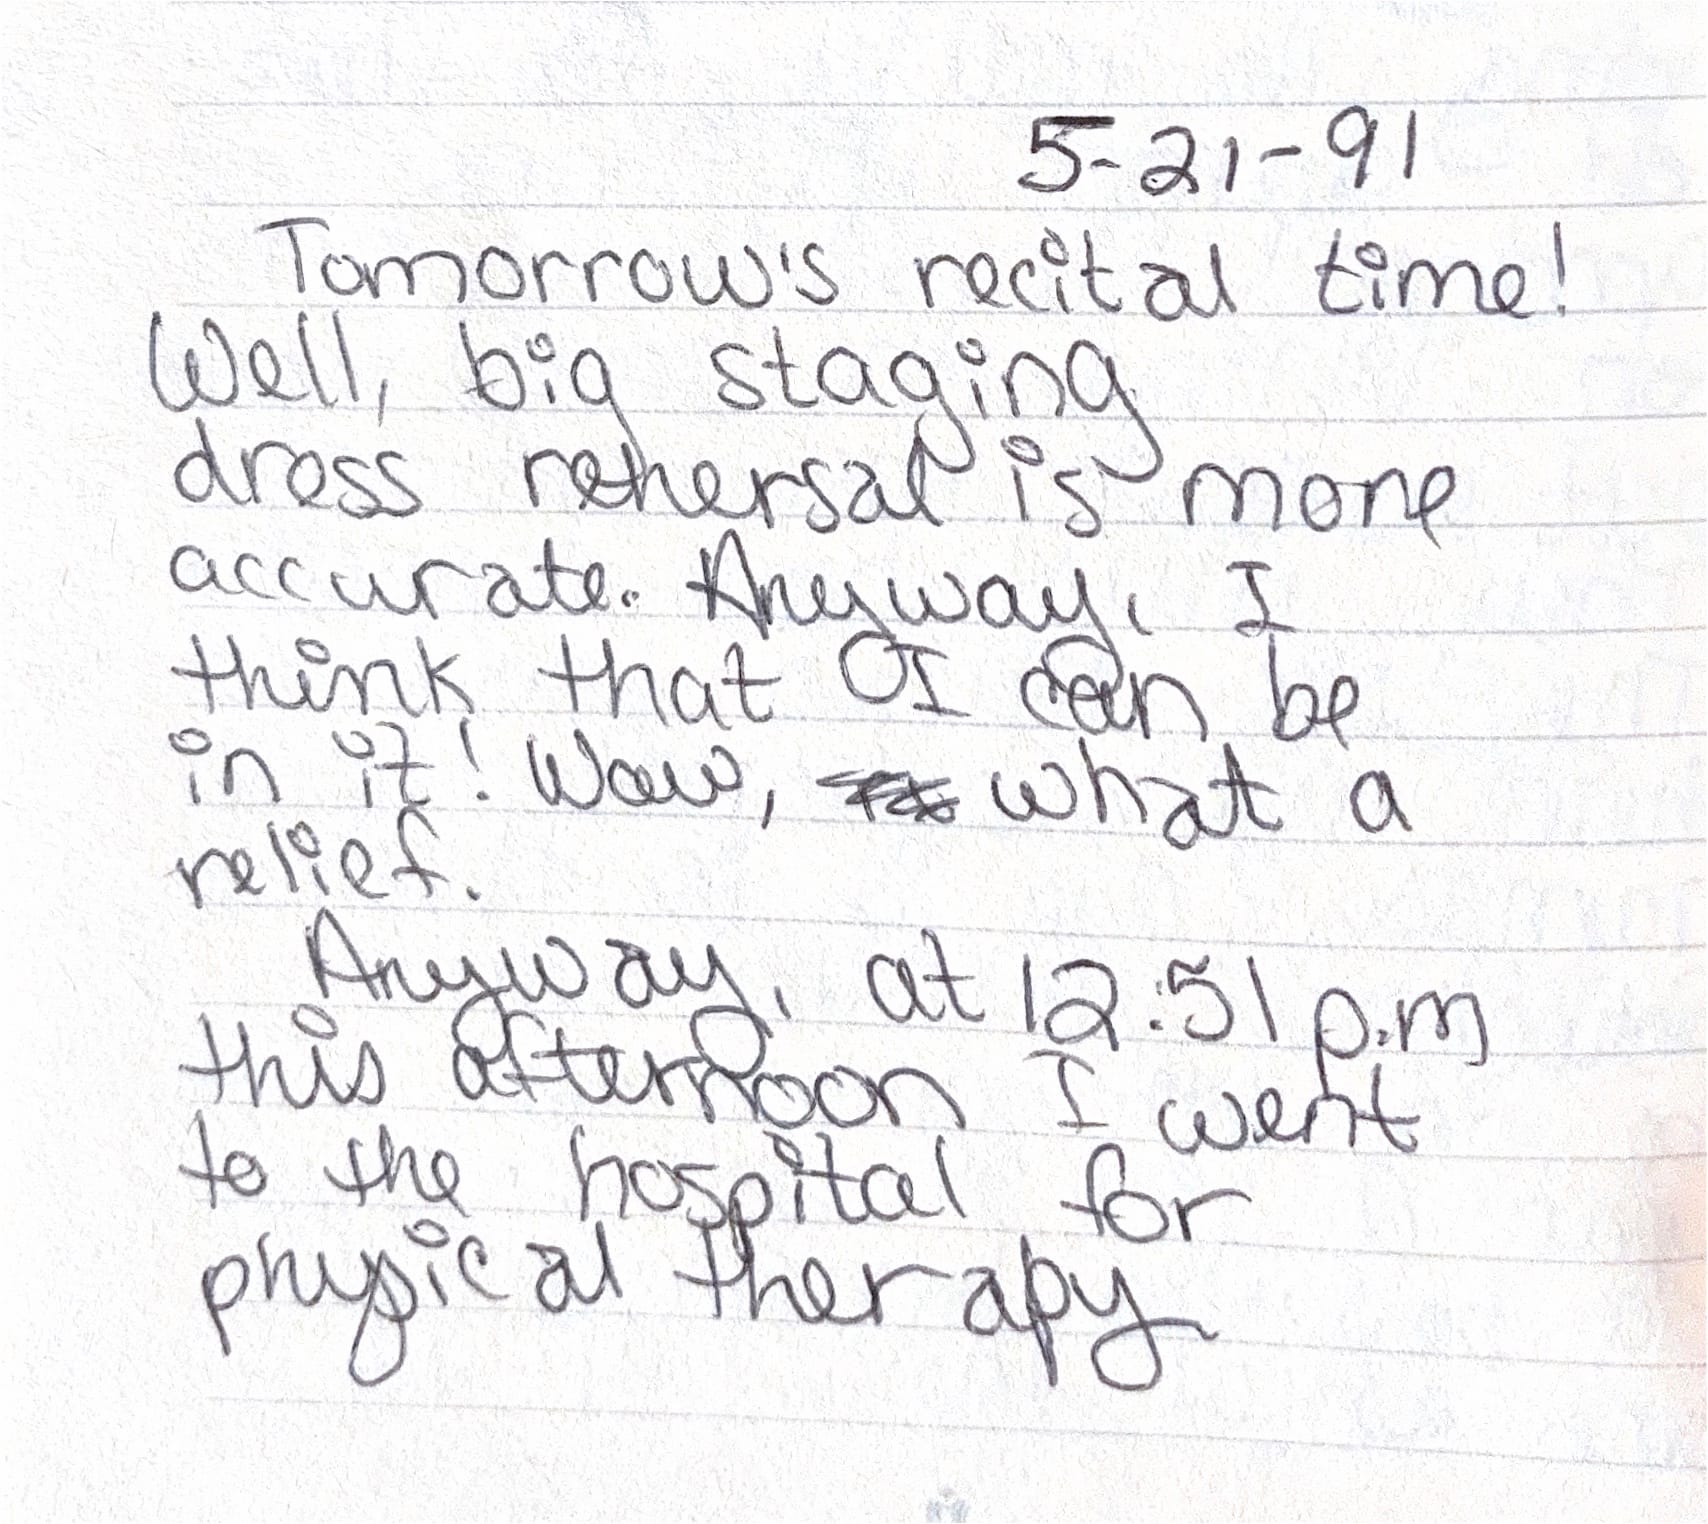 5-21-91
Tomorrow's recital time!
Well, big staging
dress rehersal is more
accurate. Anyway, I
think that I can be
in it! Wow, what a
relief.
Anyway, at 12:51 p.m
this afternoon I went
to the hospital for
physical therapy